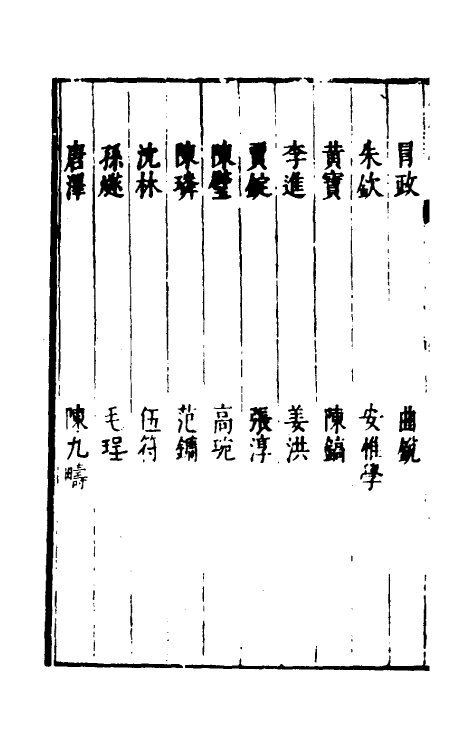 冒政　曲銳
朱欽　安惟學
黃寶　陳鎬
李進　姜洪
賈錠　張淳
陳璧　高玩
陳璘　范鏞
沈林　伍符
孫燧　毛珵
唐澤　陳九疇